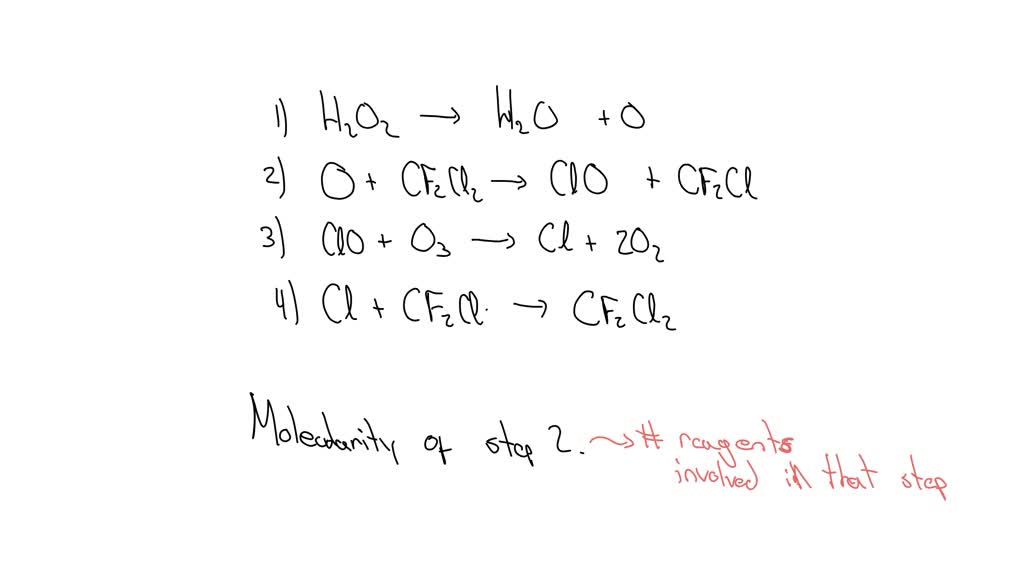 1) H₂O₂ → H₂O + O
2) O + CF₂Cl₂ → ClO + CF₂Cl
3) ClO + O₃ → Cl + 2O₂
4) Cl + CF₂Cl· → CF₂Cl₂
Molecularity of step 2. ⟿ # reagents
involved in that step